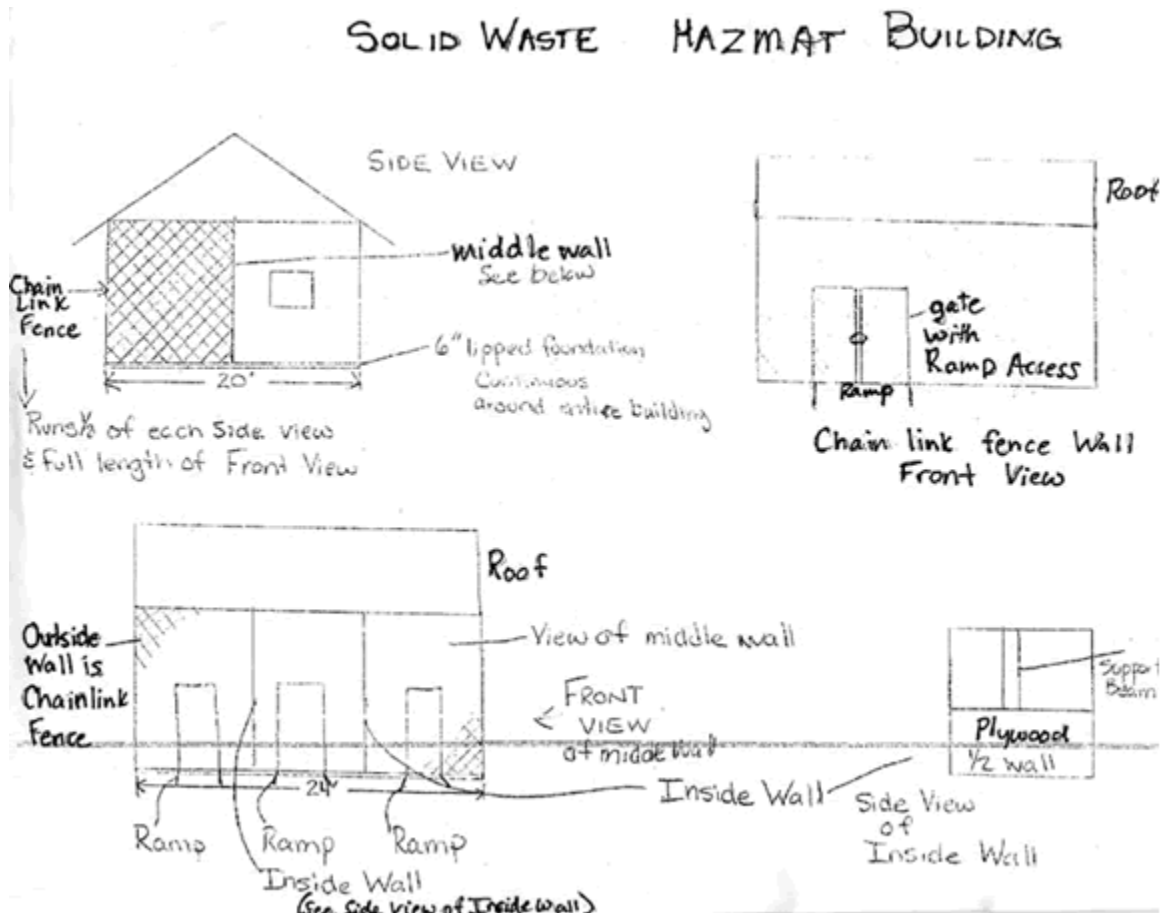 SOLID WASTE HAZMAT BUILDING
SIDE VIEW
middle wall
See below
Chain
Link
Fence
6" lipped foundation
Continuous
around entire building
20'
Runs ½ of each Side view
& Full length of Front View
Roof
gate
with
Ramp Access
Ramp
Chain link fence Wall
Front View
Roof
Outside
Wall is
Chainlink
Fence
View of middle wall
FRONT
VIEW
of middle wall
24'
Ramp
Ramp
Ramp
Inside Wall
Inside Wall
(See Side View of Inside wall)
Support
Beam
Plywood
1/2 wall
Side View
of
Inside Wall